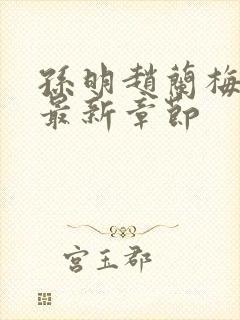 孫明趙蘭梅
最新章節
宮玉郡